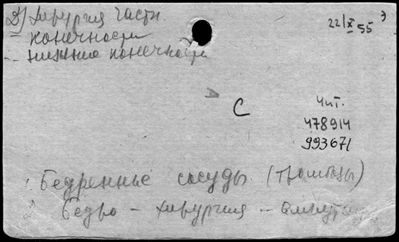 2) Хирургия части.
– конечности
– нижние конечности
22/X 55 э
С
Чит.
478914
993671
Бедренные сосуды (тромбозы)
Бедро – хирургия – ампутац